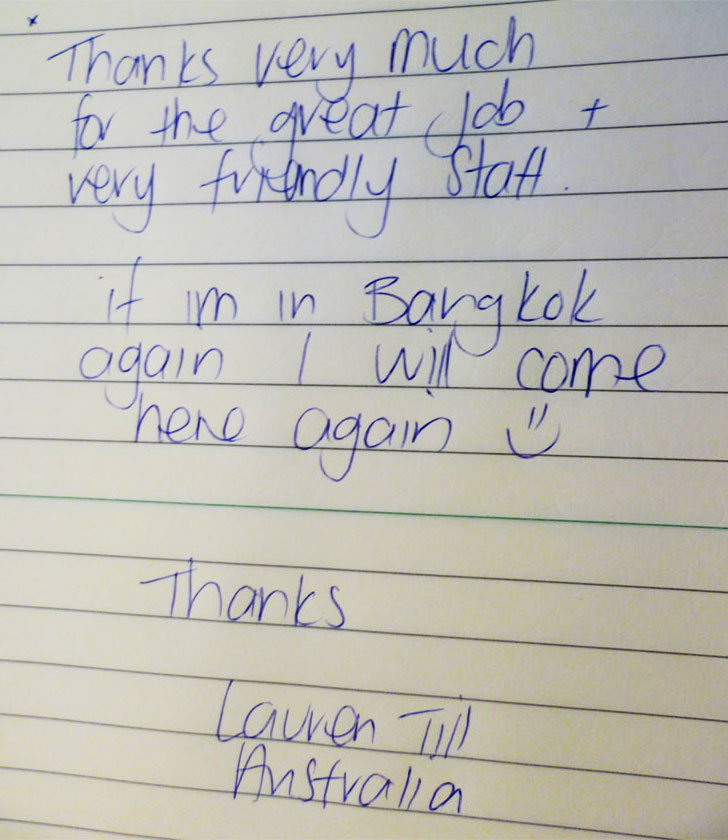 Thanks very much
for the great job +
very friendly Staff.
if im in Bangkok
again I will come
here again
Thanks
Lauren Till
Australia